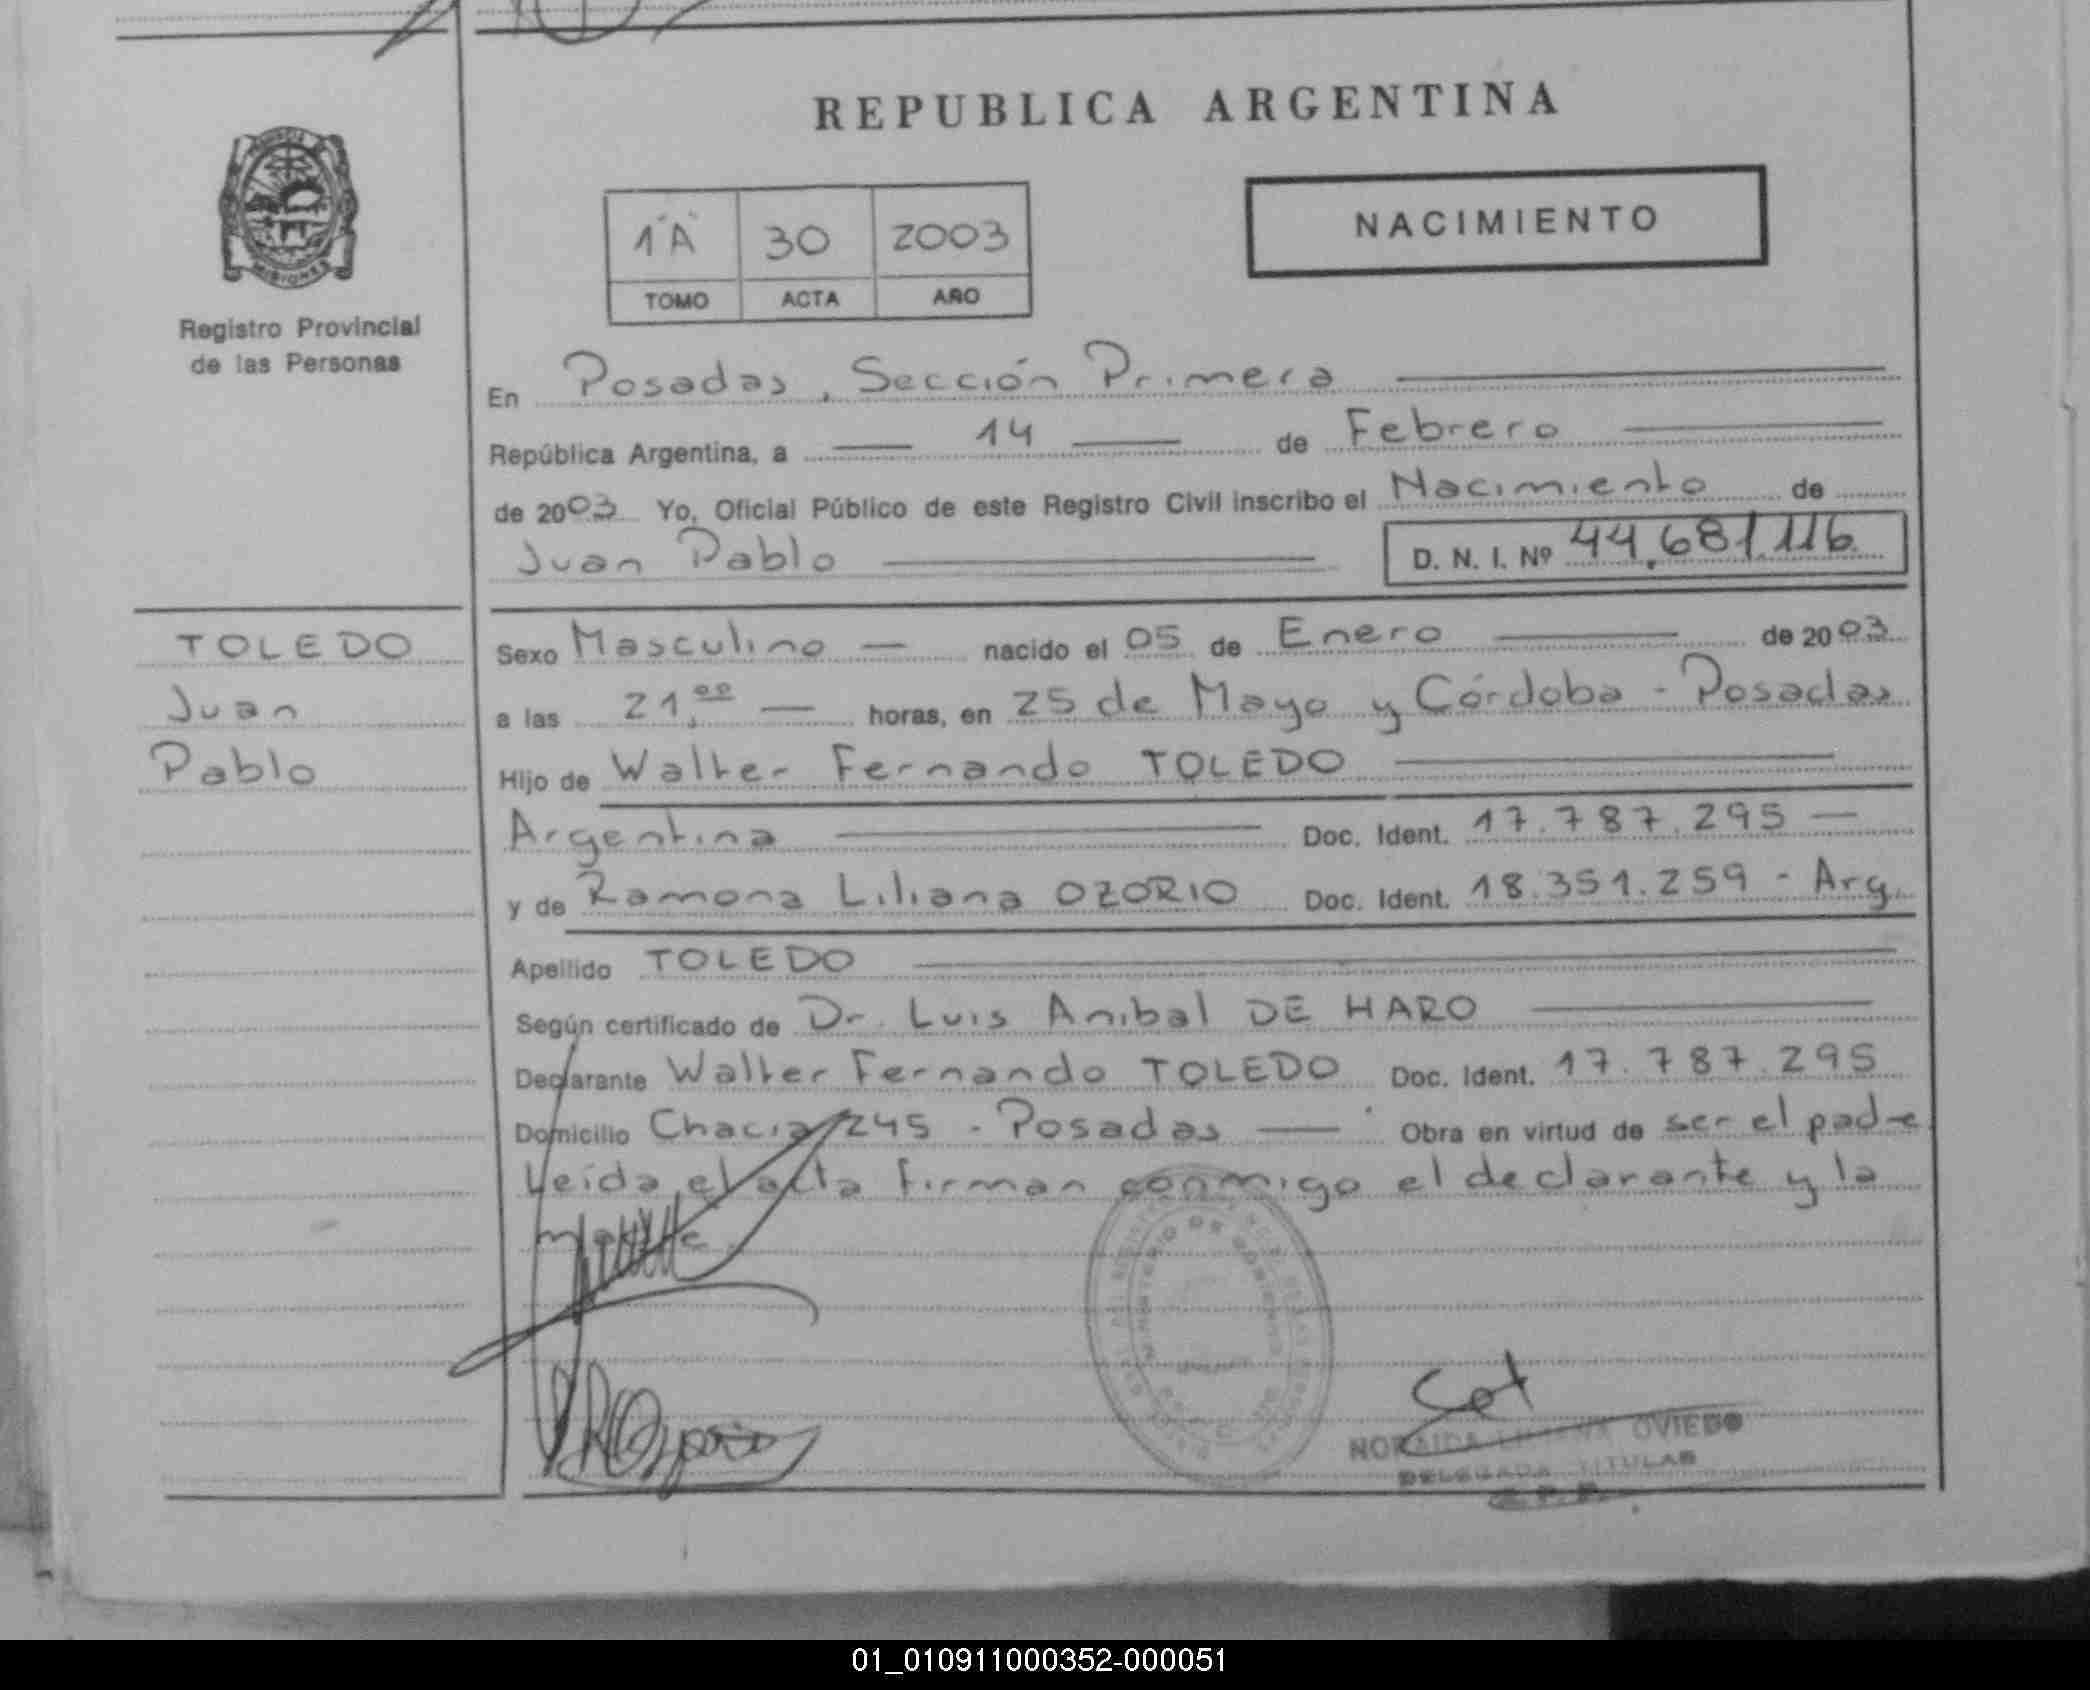 REPUBLICA ARGENTINA
PROVINCIA
MISIONES
Registro Provincial
de las Personas
1"A" 30 2003
TOMO ACTA AÑO
NACIMIENTO
En Posadas, Sección Primera
República Argentina, a 14 de Febrero
de 2003 Yo, Oficial Público de este Registro Civil inscribo el Nacimiento de
Juan Pablo D. N. I. Nº 44.681.116
TOLEDO
Juan
Pablo
Sexo Masculino nacido el 05 de Enero de 2003
a las 21,00 horas, en 25 de Mayo y Córdoba - Posadas
Hijo de Walter Fernando TOLEDO
Argentina Doc. Ident. 17.787.295
y de Ramona Liliana OZORIO Doc. Ident. 18.351.259 - Arg.
Apellido TOLEDO
Según certificado de Dr. Luis Anibal DE HARO
Declarante Walter Fernando TOLEDO Doc. Ident. 17.787.295
Domicilio 245 - Posadas Obra en virtud de ser el padre
Leída el acta firman conmigo el declarante y la
madre.
MINISTERIO DE GOBIERNO
OVIEDO
DELEGADA TITULAR
01_010911000352-000051